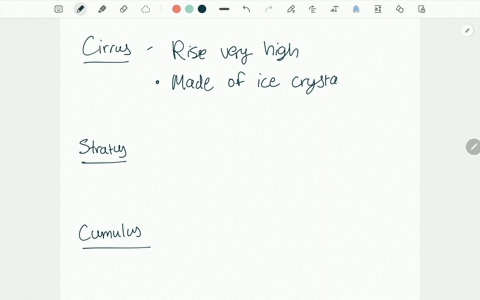 Cirrus - Rise very high
• Made of ice crysta
Stratus
Cumulus